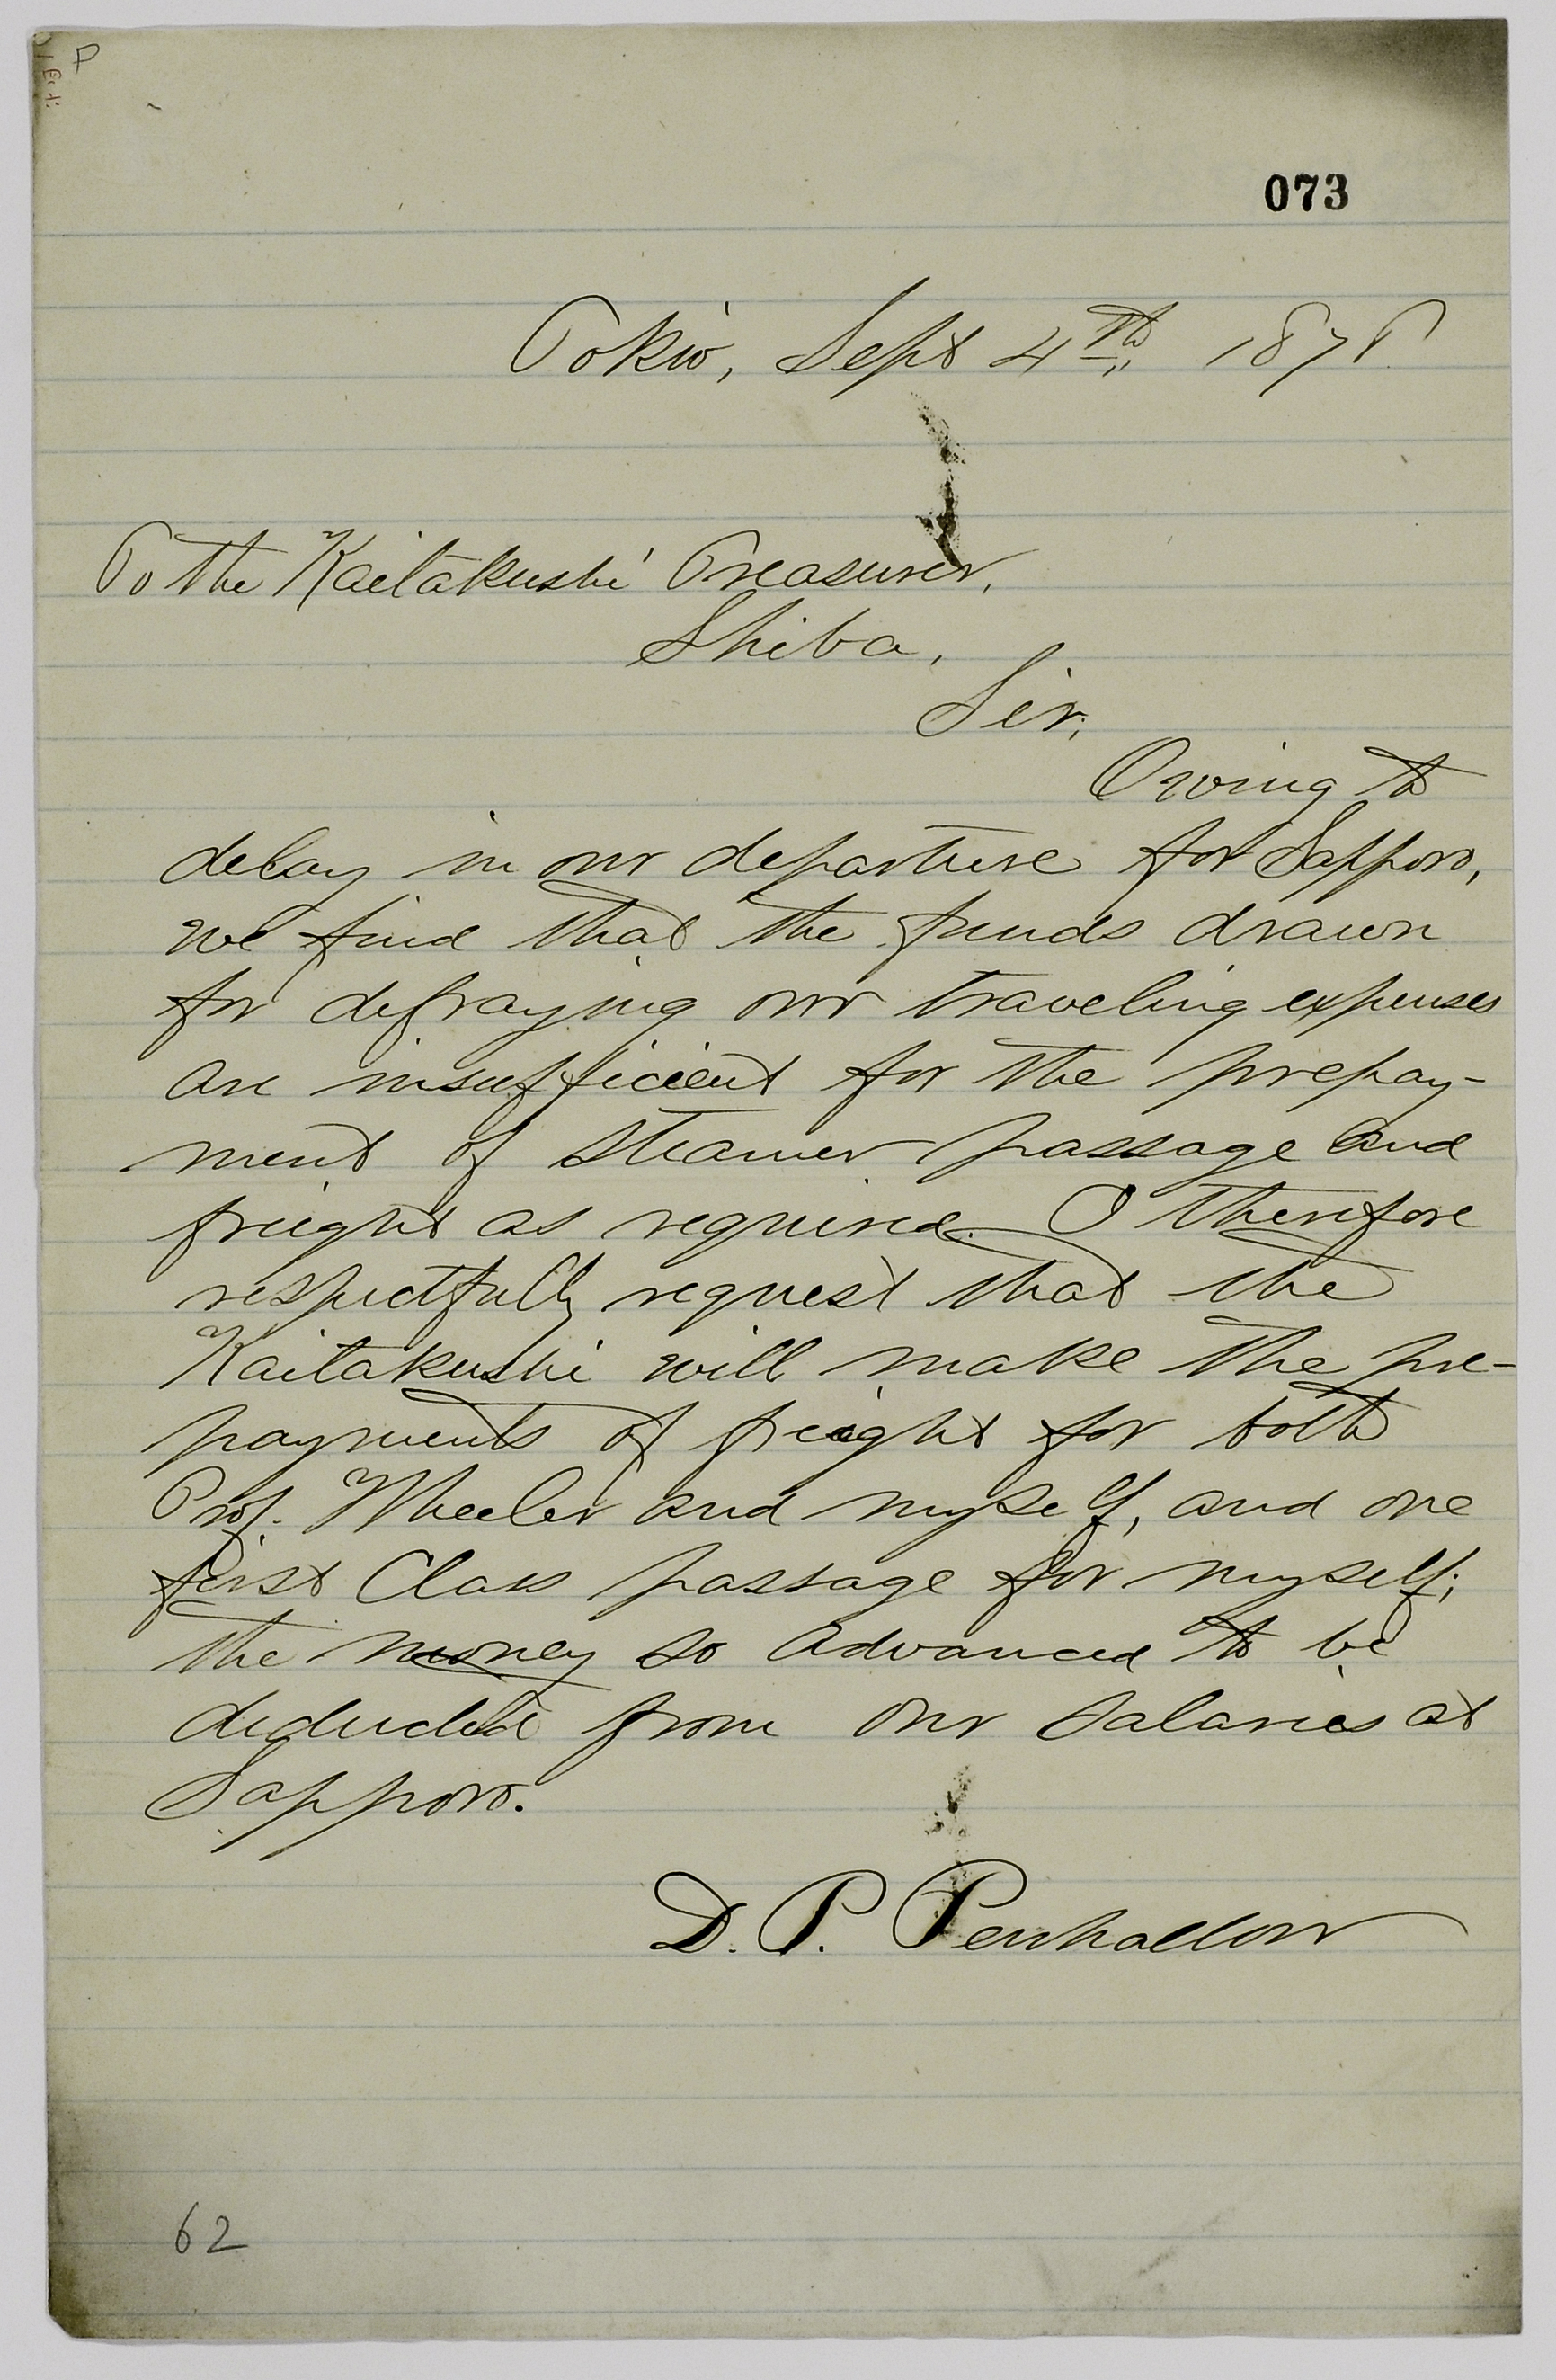 P
073
Tokio, Sept 4th, 1878.
To the Kaitakushi Treasurer,
Shiba,
Sir;
Owing to
delay in our departure for Sapporo,
we find that the funds drawn
for defraying our traveling expenses
are insufficient for the prepay-
ment of steamer passage and
freight as required. I therefore
respectfully request that the
Kaitakushi will make the pre-
payments of freight for both
Prof. Wheeler and myself, and one
first Class passage for myself;
the money so advanced to be
deducted from our salaries at
Sapporo.
D. P. Penhallow
62